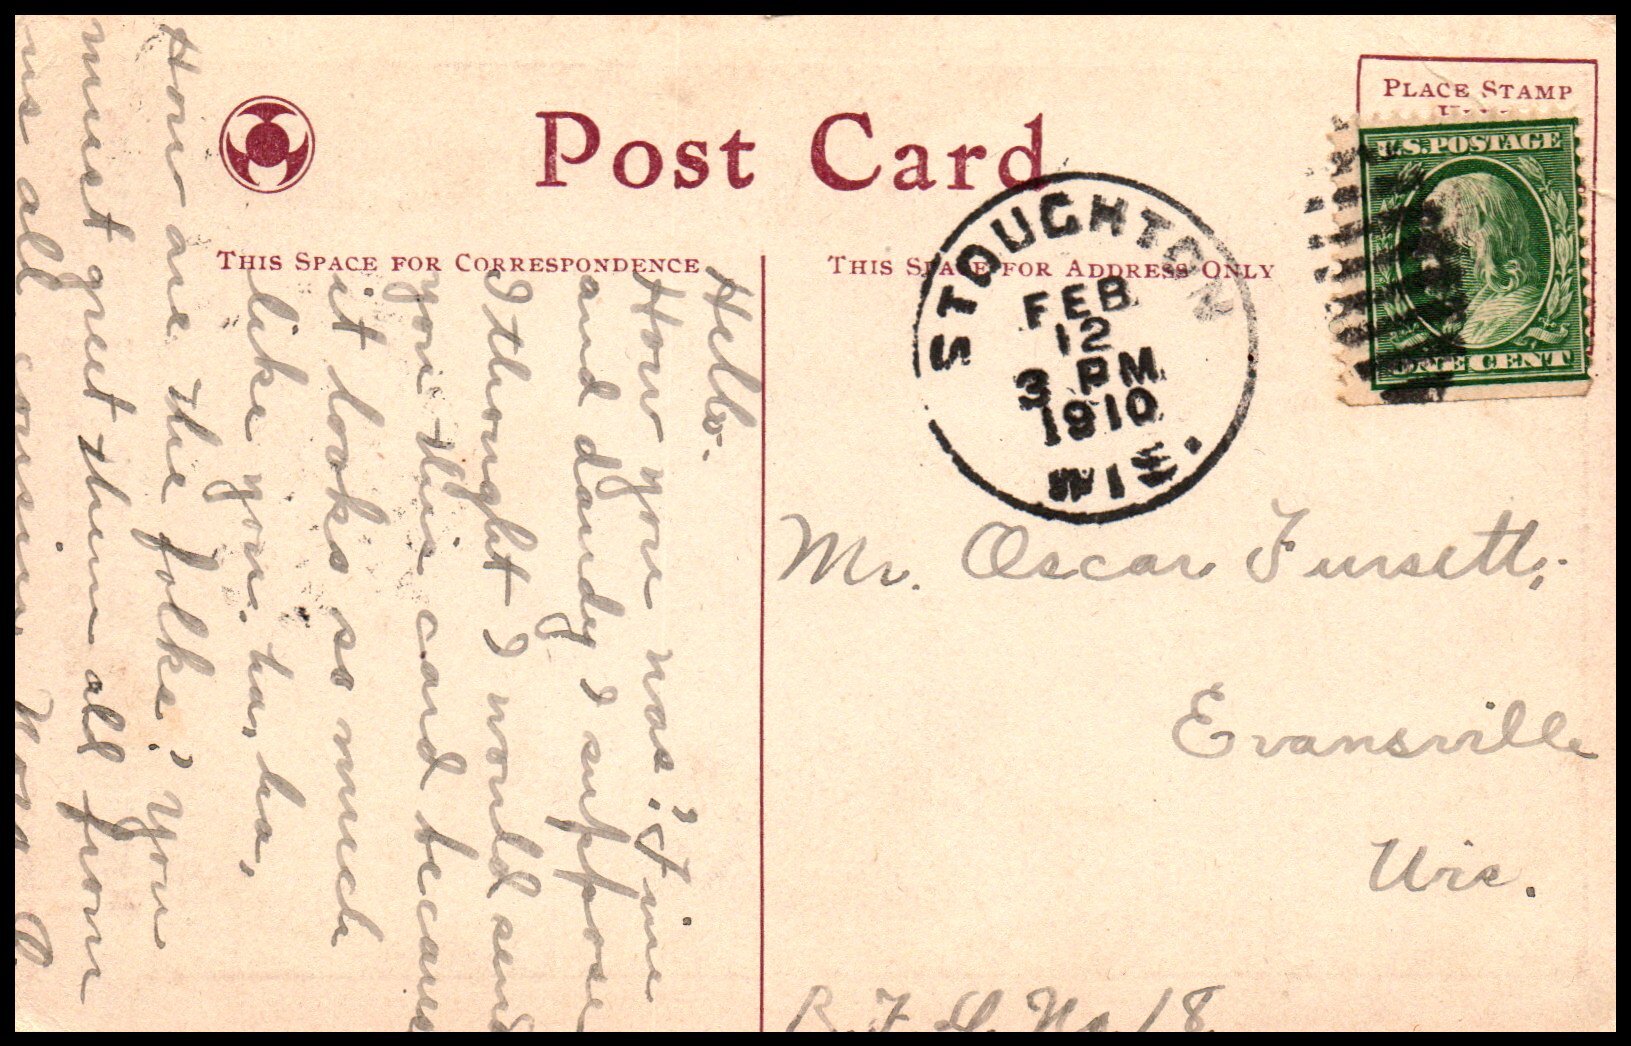 Post Card
PLACE STAMP
THIS SPACE FOR CORRESPONDENCE
THIS SPACE FOR ADDRESS ONLY
U.S. POSTAGE
ONE CENT
STOUGHTON
FEB
12
3 PM
1910
WIS.
Hello.
How you was? Fine
and dandy I suppose
I thought I would send
you this card because
it looks so much
like you. ha, ha,
How are the folks? You
must greet them all from
us all
Mr. Oscar Fursett,
Evansville
Wis.
R.F.D. No. 18